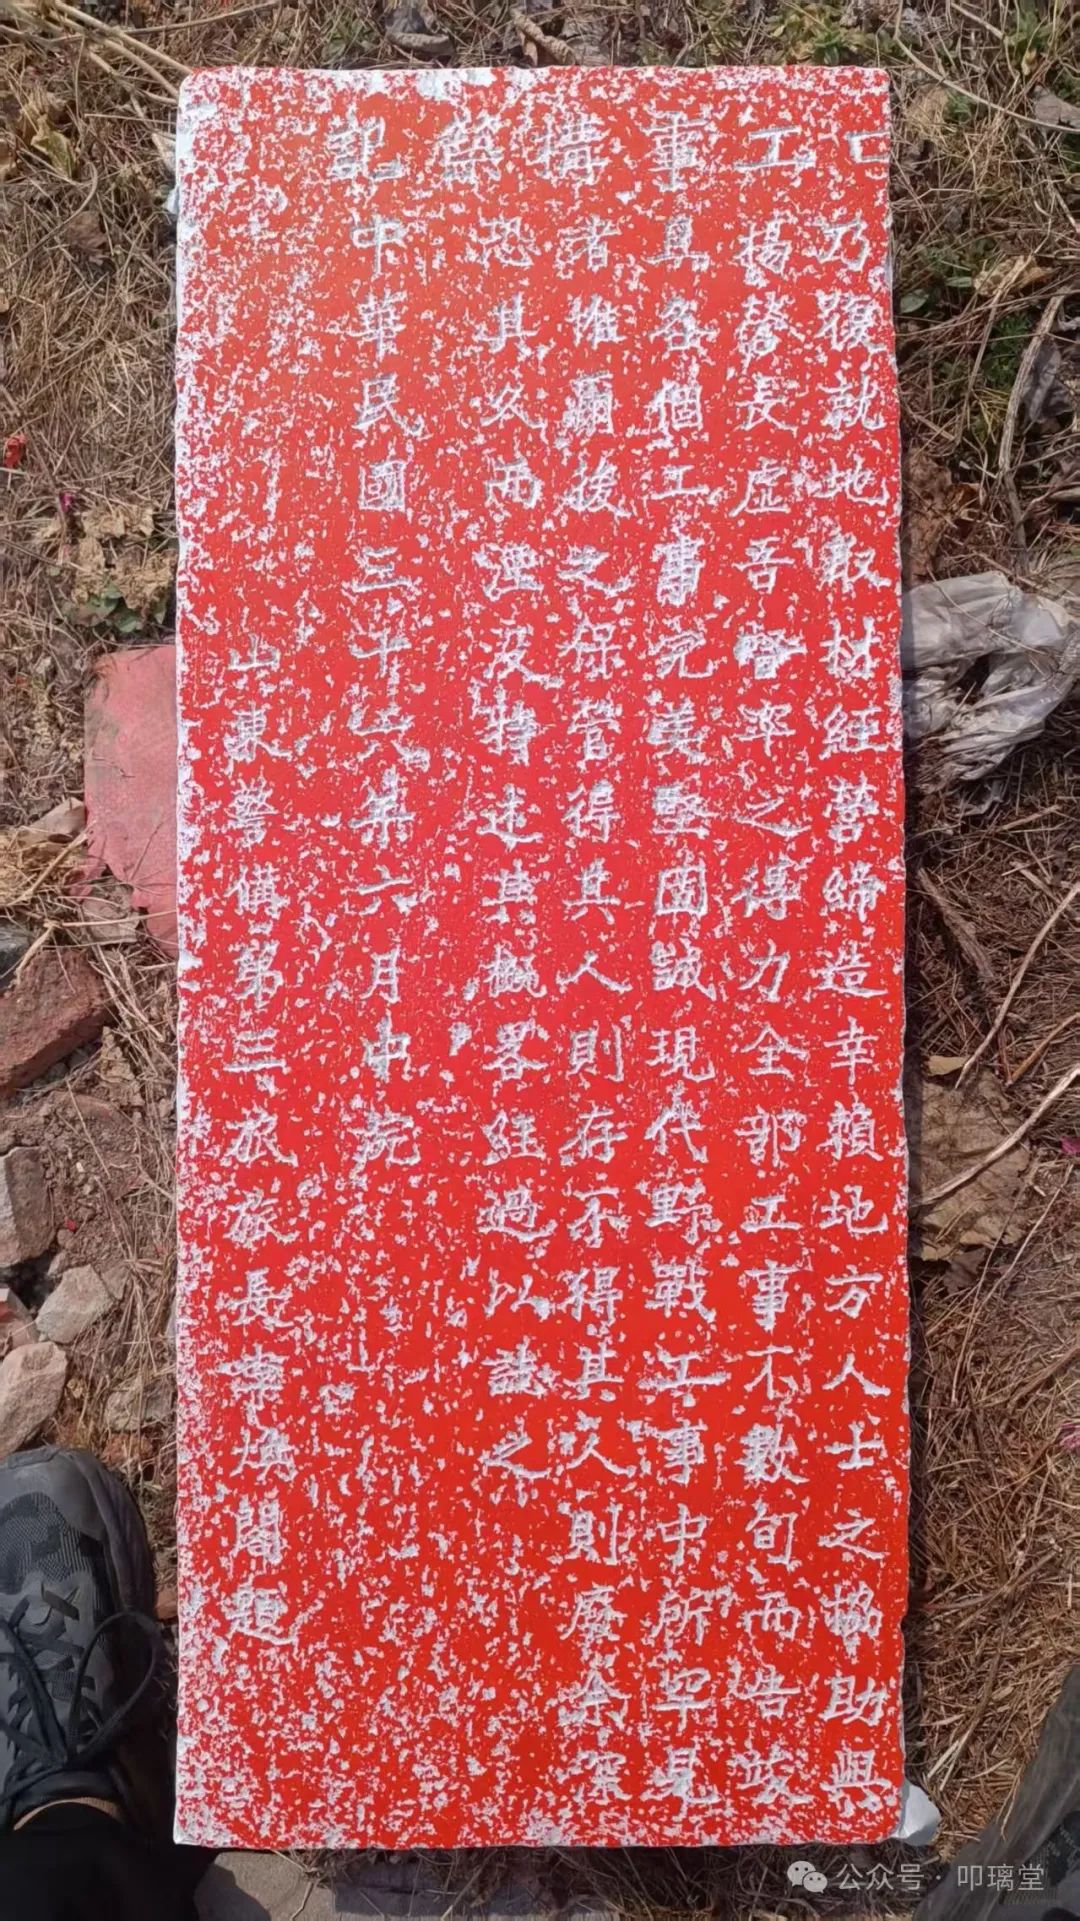 工事構築記
乃復就地取材經營締造幸賴地方人士之協助與
楊營長虛吾督率之得力全部工事不數旬而告竣
且各個工事完美堅固誠現代野戰工事中所罕見
者惟爾後之保管得其人則存不得其人則廢余深
恐其久而湮沒特述其概略經過以誌之
中華民國三十年六月中浣
山東警備第三旅旅長閣題
公众号·叩璃堂